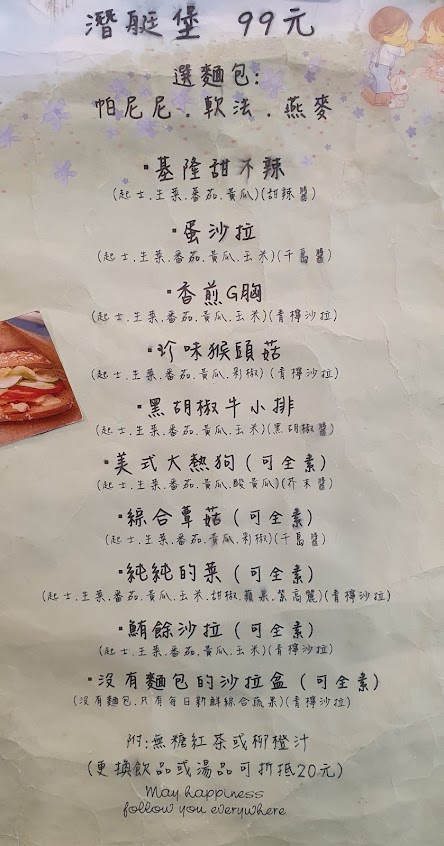 潛艇堡 99元
選麵包:
帕尼尼.軟法.燕麥
·基隆甜不辣
(起士.生菜.番茄.黃瓜)(甜辣醬)
·蛋沙拉
(起士.生菜.番茄.黃瓜.玉米)(千島醬)
·香煎G胸
(起士.生菜.番茄.黃瓜.玉米)(青檸沙拉)
·珍味猴頭菇
(起士.生菜.番茄.黃瓜.剝椒)(青檸沙拉)
·黑胡椒牛小排
(起士.生菜.番茄.黃瓜.玉米)(黑胡椒醬)
·美式大熱狗(可全素)
(起士.生菜.番茄.黃瓜.酸黃瓜)(芥末醬)
·綜合蕈菇(可全素)
(起士.生菜.番茄.黃瓜.剝椒)(千島醬)
·純純的菜(可全素)
(起士.生菜.番茄.黃瓜.玉米.甜椒.蘋果.紫高麗)(青檸沙拉)
·鮪餘沙拉(可全素)
(起士.生菜.番茄.黃瓜.玉米)(青檸沙拉)
·沒有麵包的沙拉盒(可全素)
(沒有麵包,只有每日新鮮綜合蔬果)(青檸沙拉)
附:無糖紅茶或柳橙汁
(更換飲品或湯品可折抵20元)
May happiness
follow you everywhere